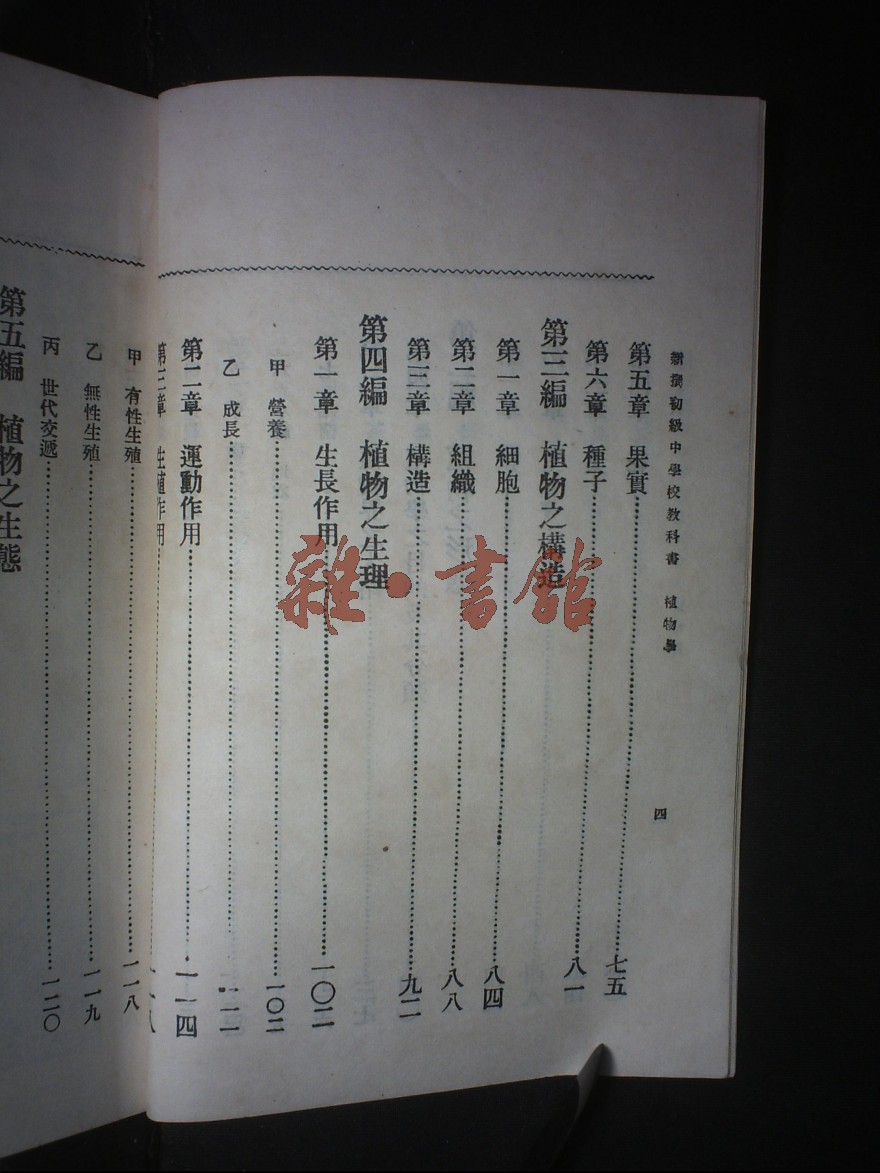 新撰初級中學校教科書 植物學
四
第五章 果實 七五
第六章 種子 八一
第三編 植物之構造
第一章 細胞 八四
第二章 組織 八八
第三章 構造 九二
第四編 植物之生理
第一章 生長作用 一〇二
甲 營養 一〇二
乙 成長 一一一
第二章 運動作用 一一四
第三章 生殖作用 一一八
甲 有性生殖 一一八
乙 無性生殖 一一九
丙 世代交遞 一二〇
第五編 植物之生態
雜·書館